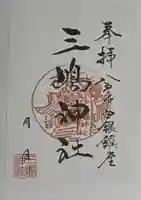 奉拝 八戸市白銀鎮座
三嶋神社
月 日